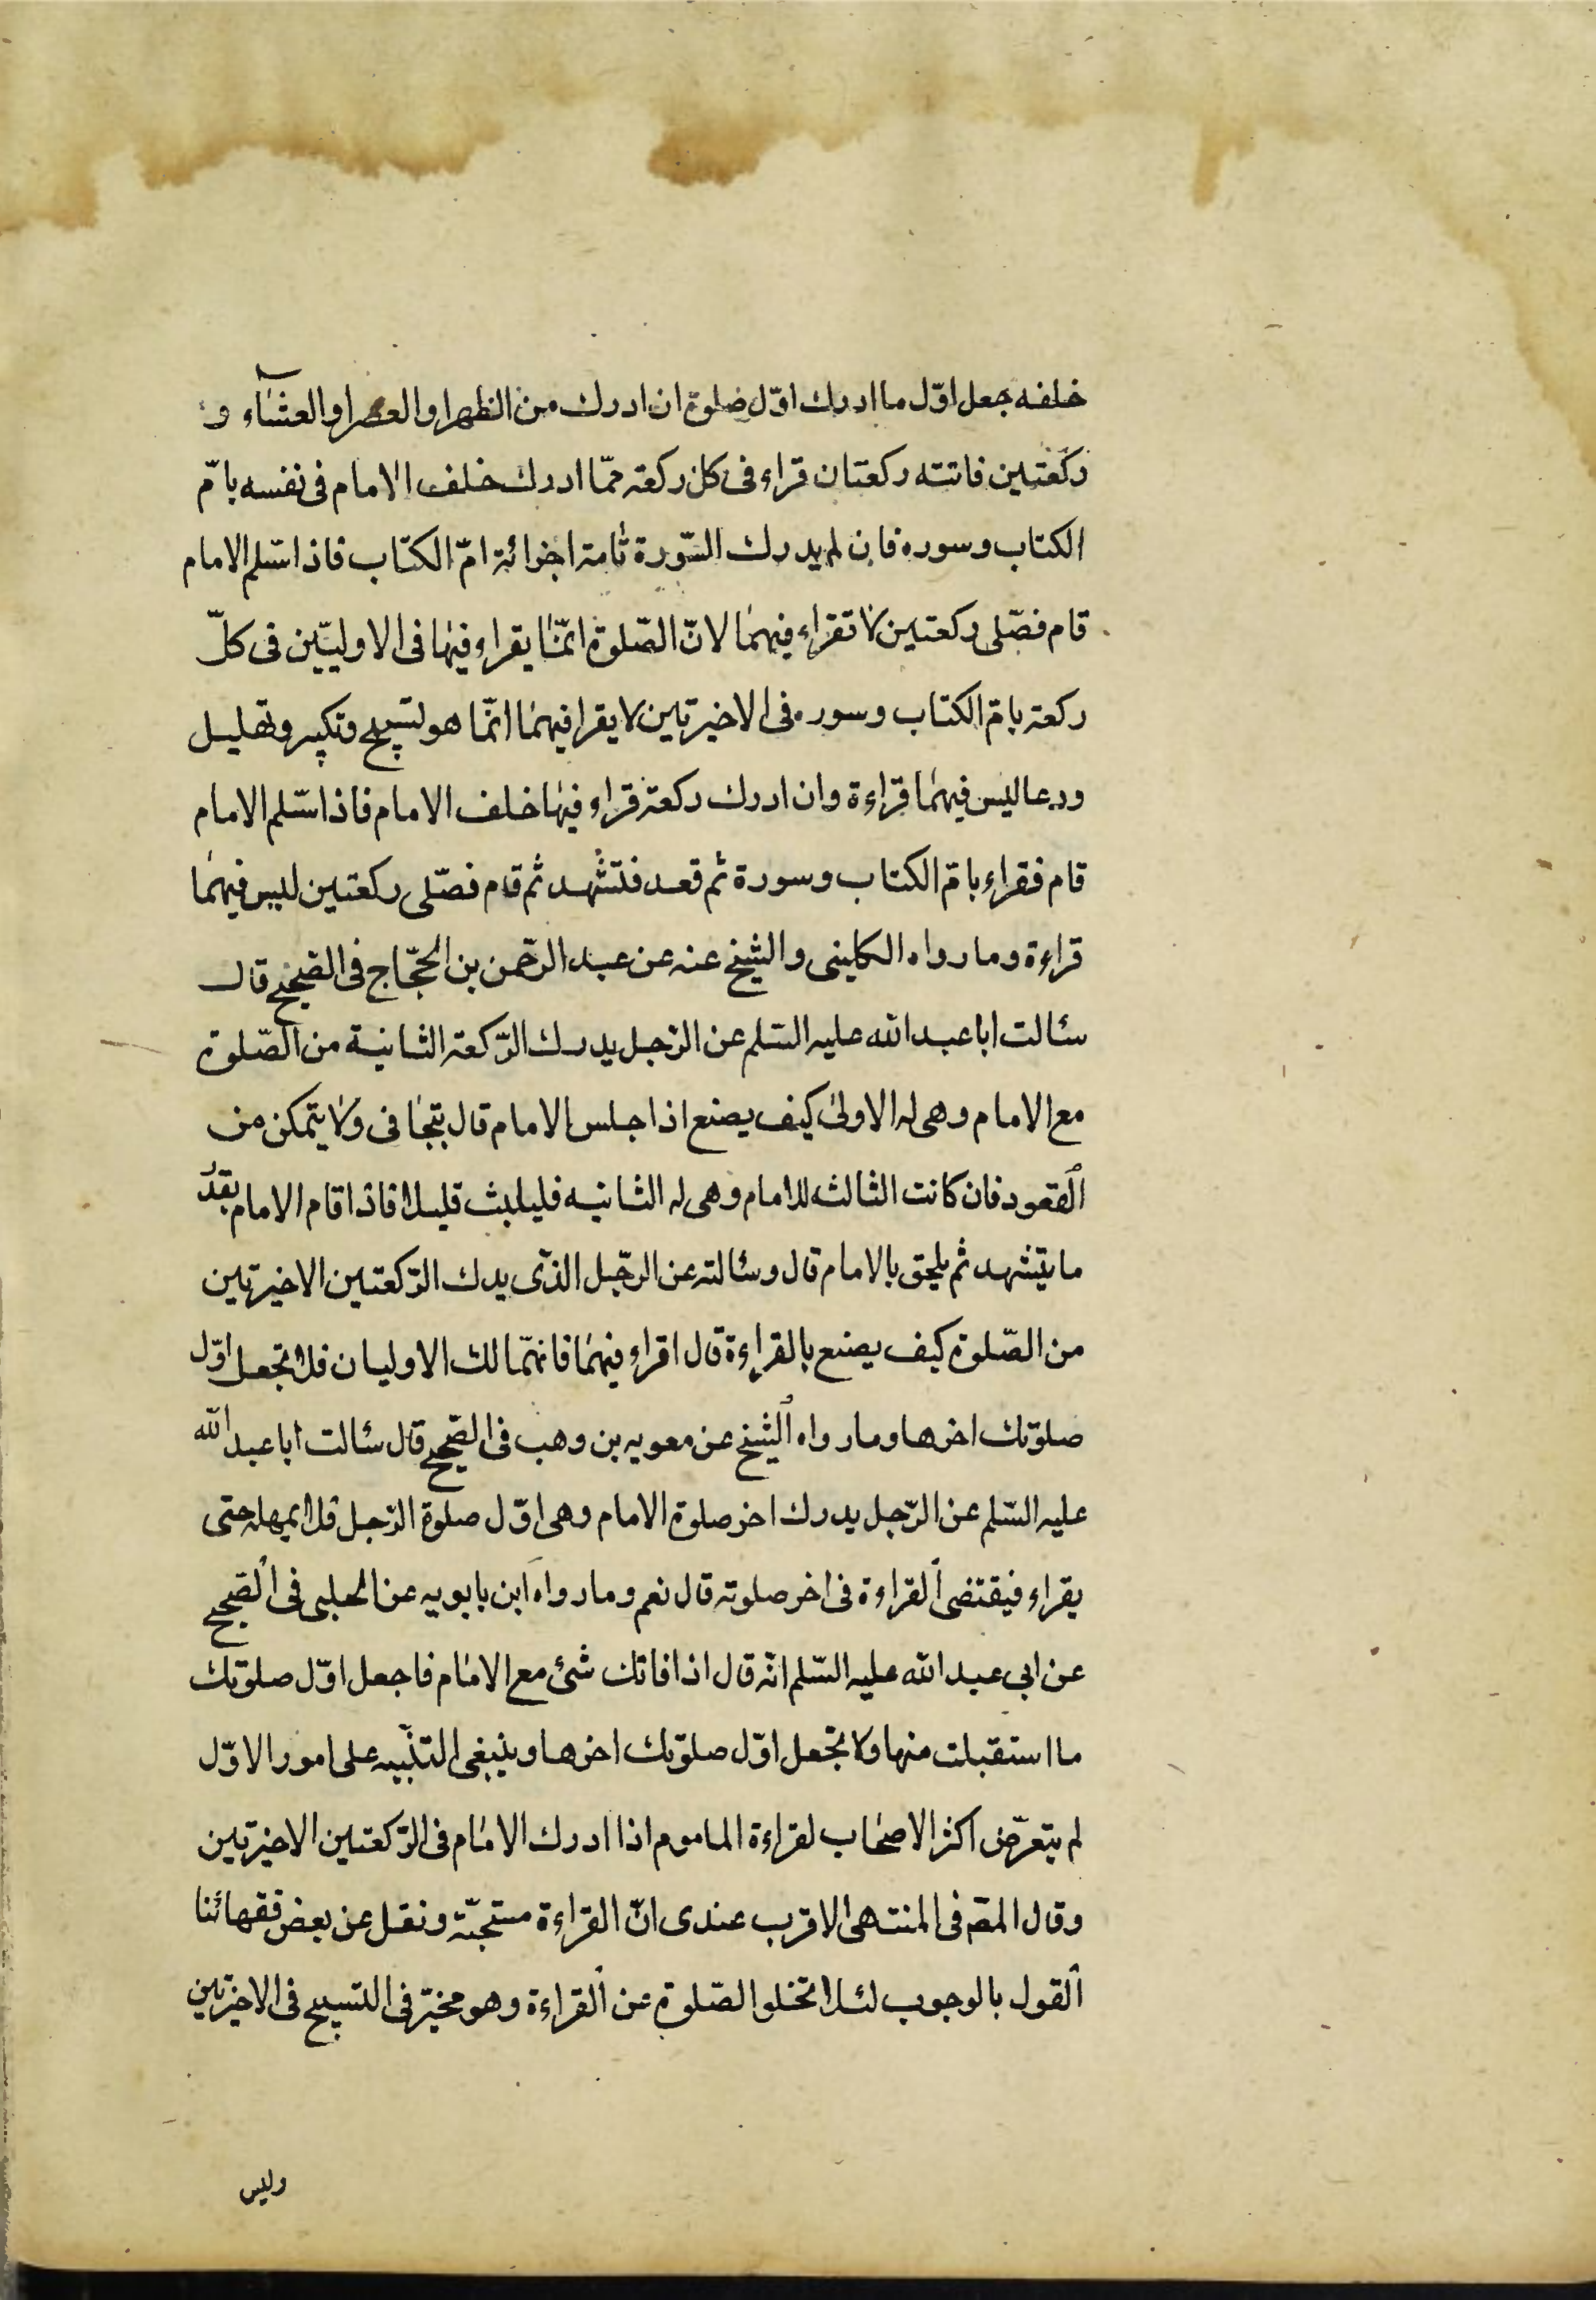 خلفه جعل اوّل ما ادرك اوّل صلوة ان ادرك من الظهر او العصر او العشاء و
ركعتين فاتته ركعتان قراء فى كل ركعة ممّا ادرك خلف الامام فى نفسه بامّ
الكتاب وسوره فان لم يدرك السّورة تامة اجزائة امّ الكتاب فاذا سّلم الامام
قام فصّلى ركعتين لا تقراء فيهما لانّ الصّلوة انّما يقراء فيها فى الاوليّين فى كلّ
ركعة بامّ الكتاب وسوره فى الاخيرتين لا يقرا فيهما انّما هو لتسبيح وتكبير وتهليل
ودعا ليس فيهما قراءة وان ادرك ركعة قراء فيها خلف الامام فاذا سّلم الامام
قام فقراء بامّ الكتاب وسورة ثم قعد فتشهد ثم قام فصّلى ركعتين ليس فيهما
قراءة وما رواه الكلينى والشيخ عنه عن عبد الرّحمن بن الحجّاج فى الصحيح قال
سئالت ابا عبد الله عليه السّلم عن الرّجل يدرك الرّكعة الثانية من الصّلوة
مع الامام وهى له الاولى كيف يصنع اذا جلس الامام قال يتجافى ولا يتمكن من
القعود فان كانت الثالثه للامام وهى له الثانيه فليلبث قليلا فاذا قام الامام بقدر
ما يتشهد ثم يلحق بالامام قال وسئالته عن الرّجل الذّى يدك الرّكعتين الاخيرتين
من الصّلوة كيف يصنع بالقراءة قال اقراء فيهما فانهّما لك الاوليان فلا تجعل اوّل
صلوتك اخرها وما رواه الشيخ عن معويه بن وهب فى الصّحيح قال سئالت ابا عبد الله
عليه السّلم عن الرّجل يدرك اخر صلوة الامام وهى اوّل صلوة الرّجل فلا يمهله حتى
يقراء فيقتضى القراءة فى اخر صلوته قال نعم وما رواه ابن بابويه عن الحلبى فى الصحيح
عن ابى عبد الله عليه السّلم انّه قال اذا فاتك شئ مع الامام فاجعل اوّل صلوتك
ما استقبلت منها ولا تجعل اوّل صلوتك اخرها وينبغى التنبّيه على امور الاوّل
لم يتعرّض اكثر الاصحاب لقراءة الماموم اذا ادرك الامام فى الرّكعتين الاخيرتين
وقال المصّ فى المنتهى الاقرب عندى انّ القراءة مستحبّة ونقل عن بعض فقهائنا
القول بالوجوب لئلا تخلو الصّلوة عن القراءة وهو مخيّر فى التسبيح فى الاخيرتين
وليس